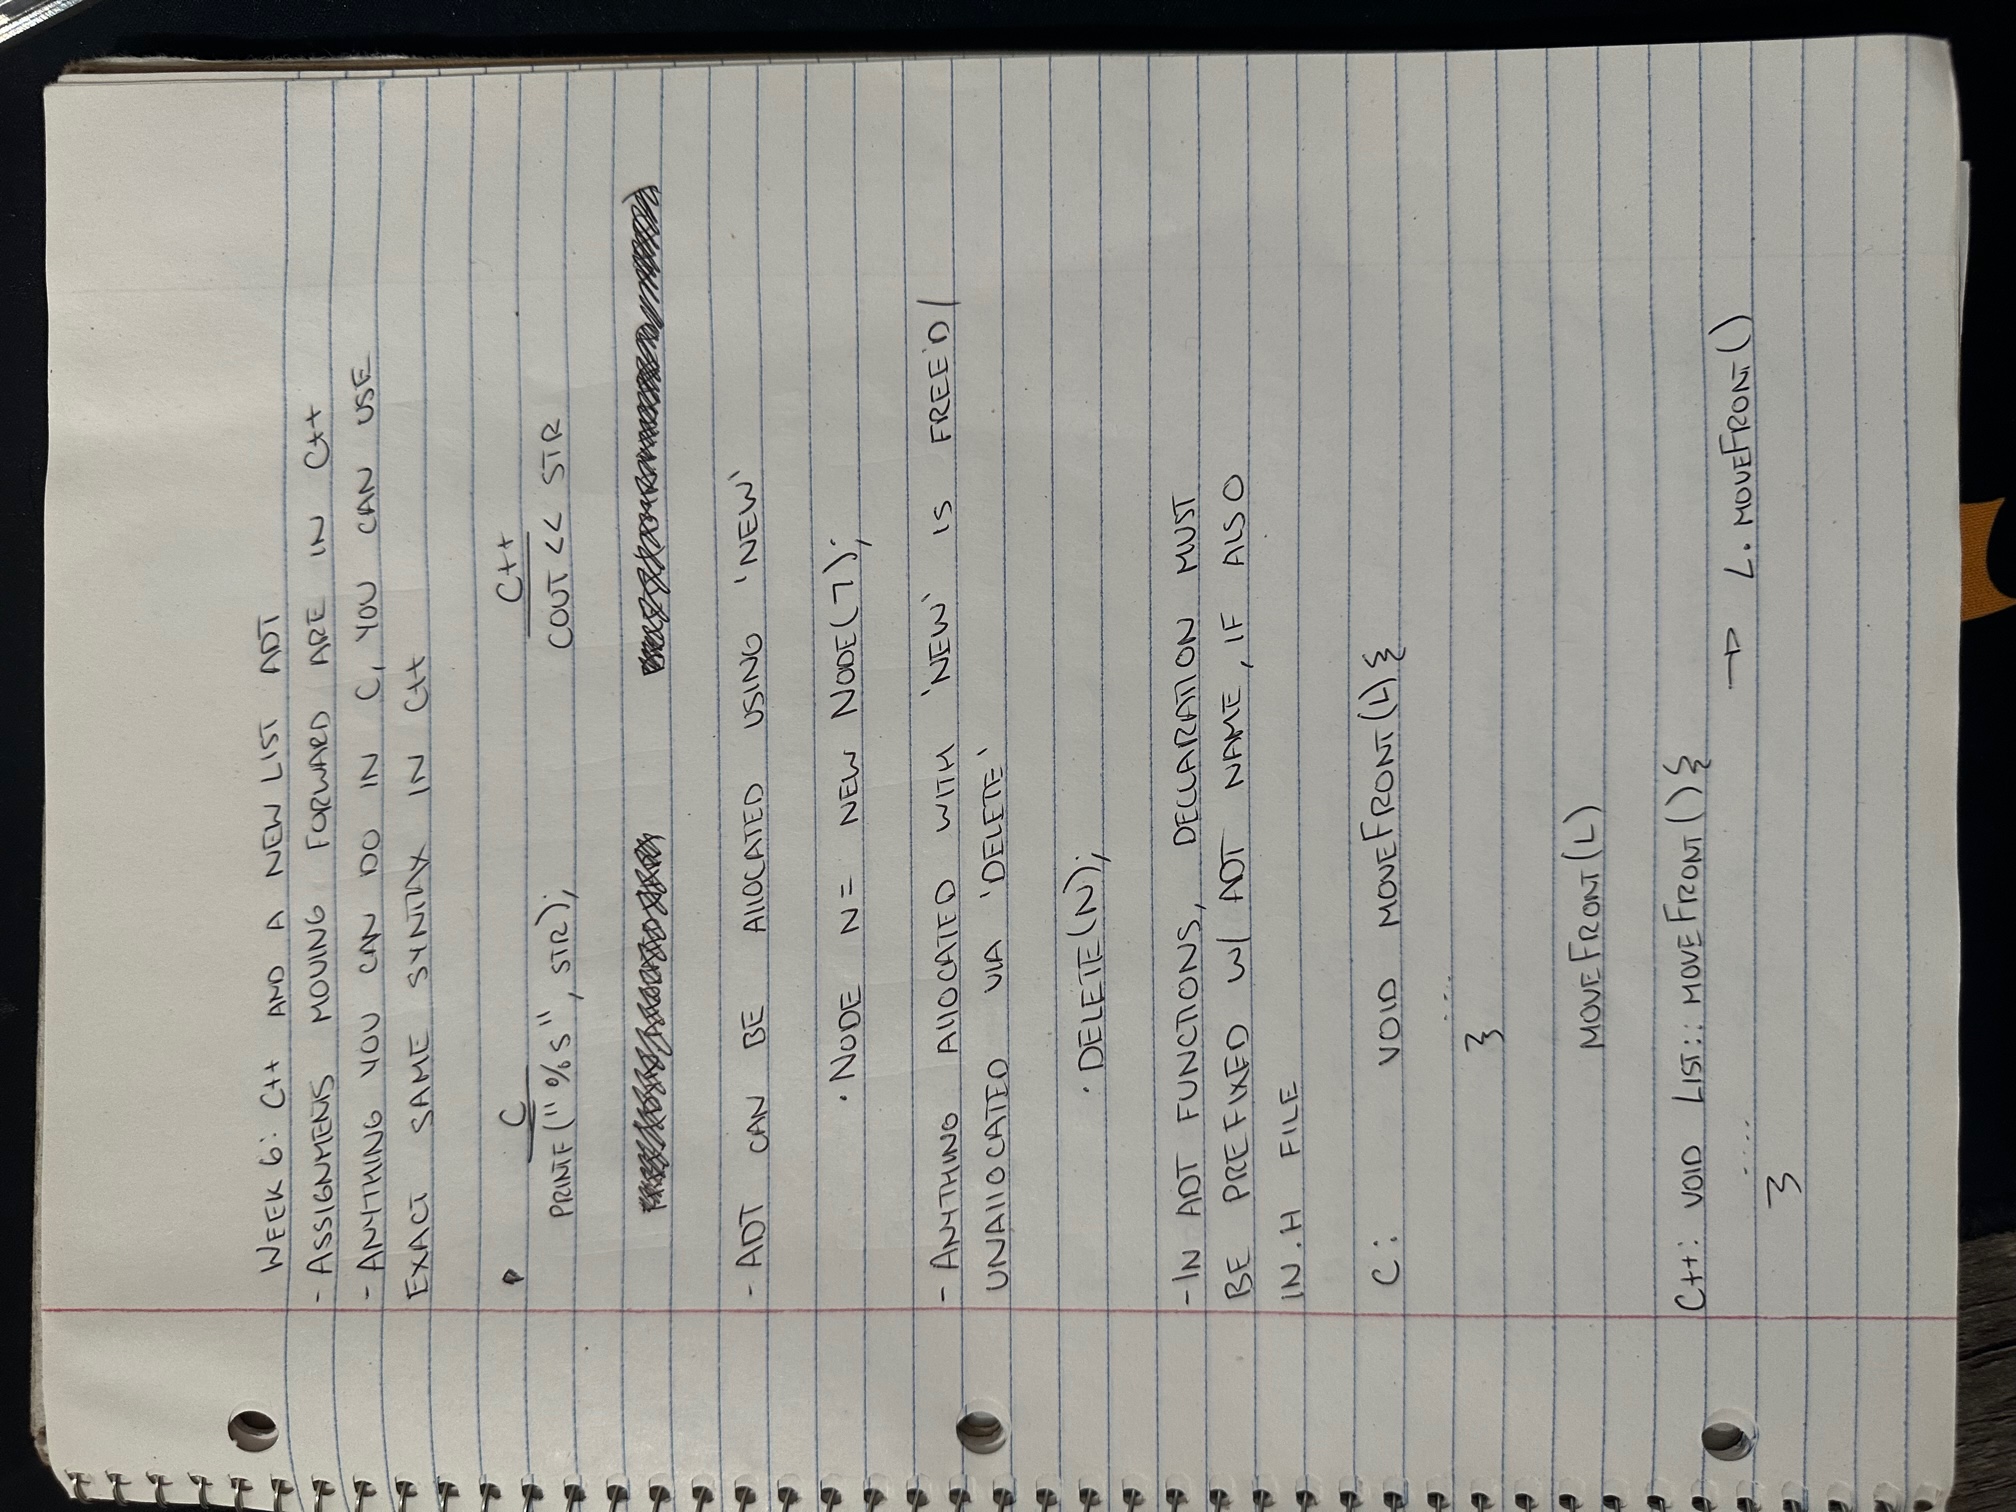 WEEK 6: C++ AND A NEW LIST ADT
- ASSIGNMENTS MOVING FORWARD ARE IN C++
- ANYTHING YOU CAN DO IN C, YOU CAN USE
EXACT SAME SYNTAX IN C++
C C++
PRINTF("%S", STR); COUT << STR
- ADT CAN BE AllOCATED USING 'NEW'
· NODE N = NEW NODE(7);
- ANYTHING AllOCATED WITH 'NEW' IS FREE'D/
UNAllOCATED VIA 'DELETE'
· DELETE(N);
- IN ADT FUNCTIONS, DECLARATION MUST
BE PREFIXED W/ ADT NAME, IF ALSO
IN .H FILE
C: VOID MOVEFRONT(L){
...
}
MOVEFRONT(L)
C++: VOID LIST::MOVEFRONT(){
→ L.MOVEFRONT()
....
}